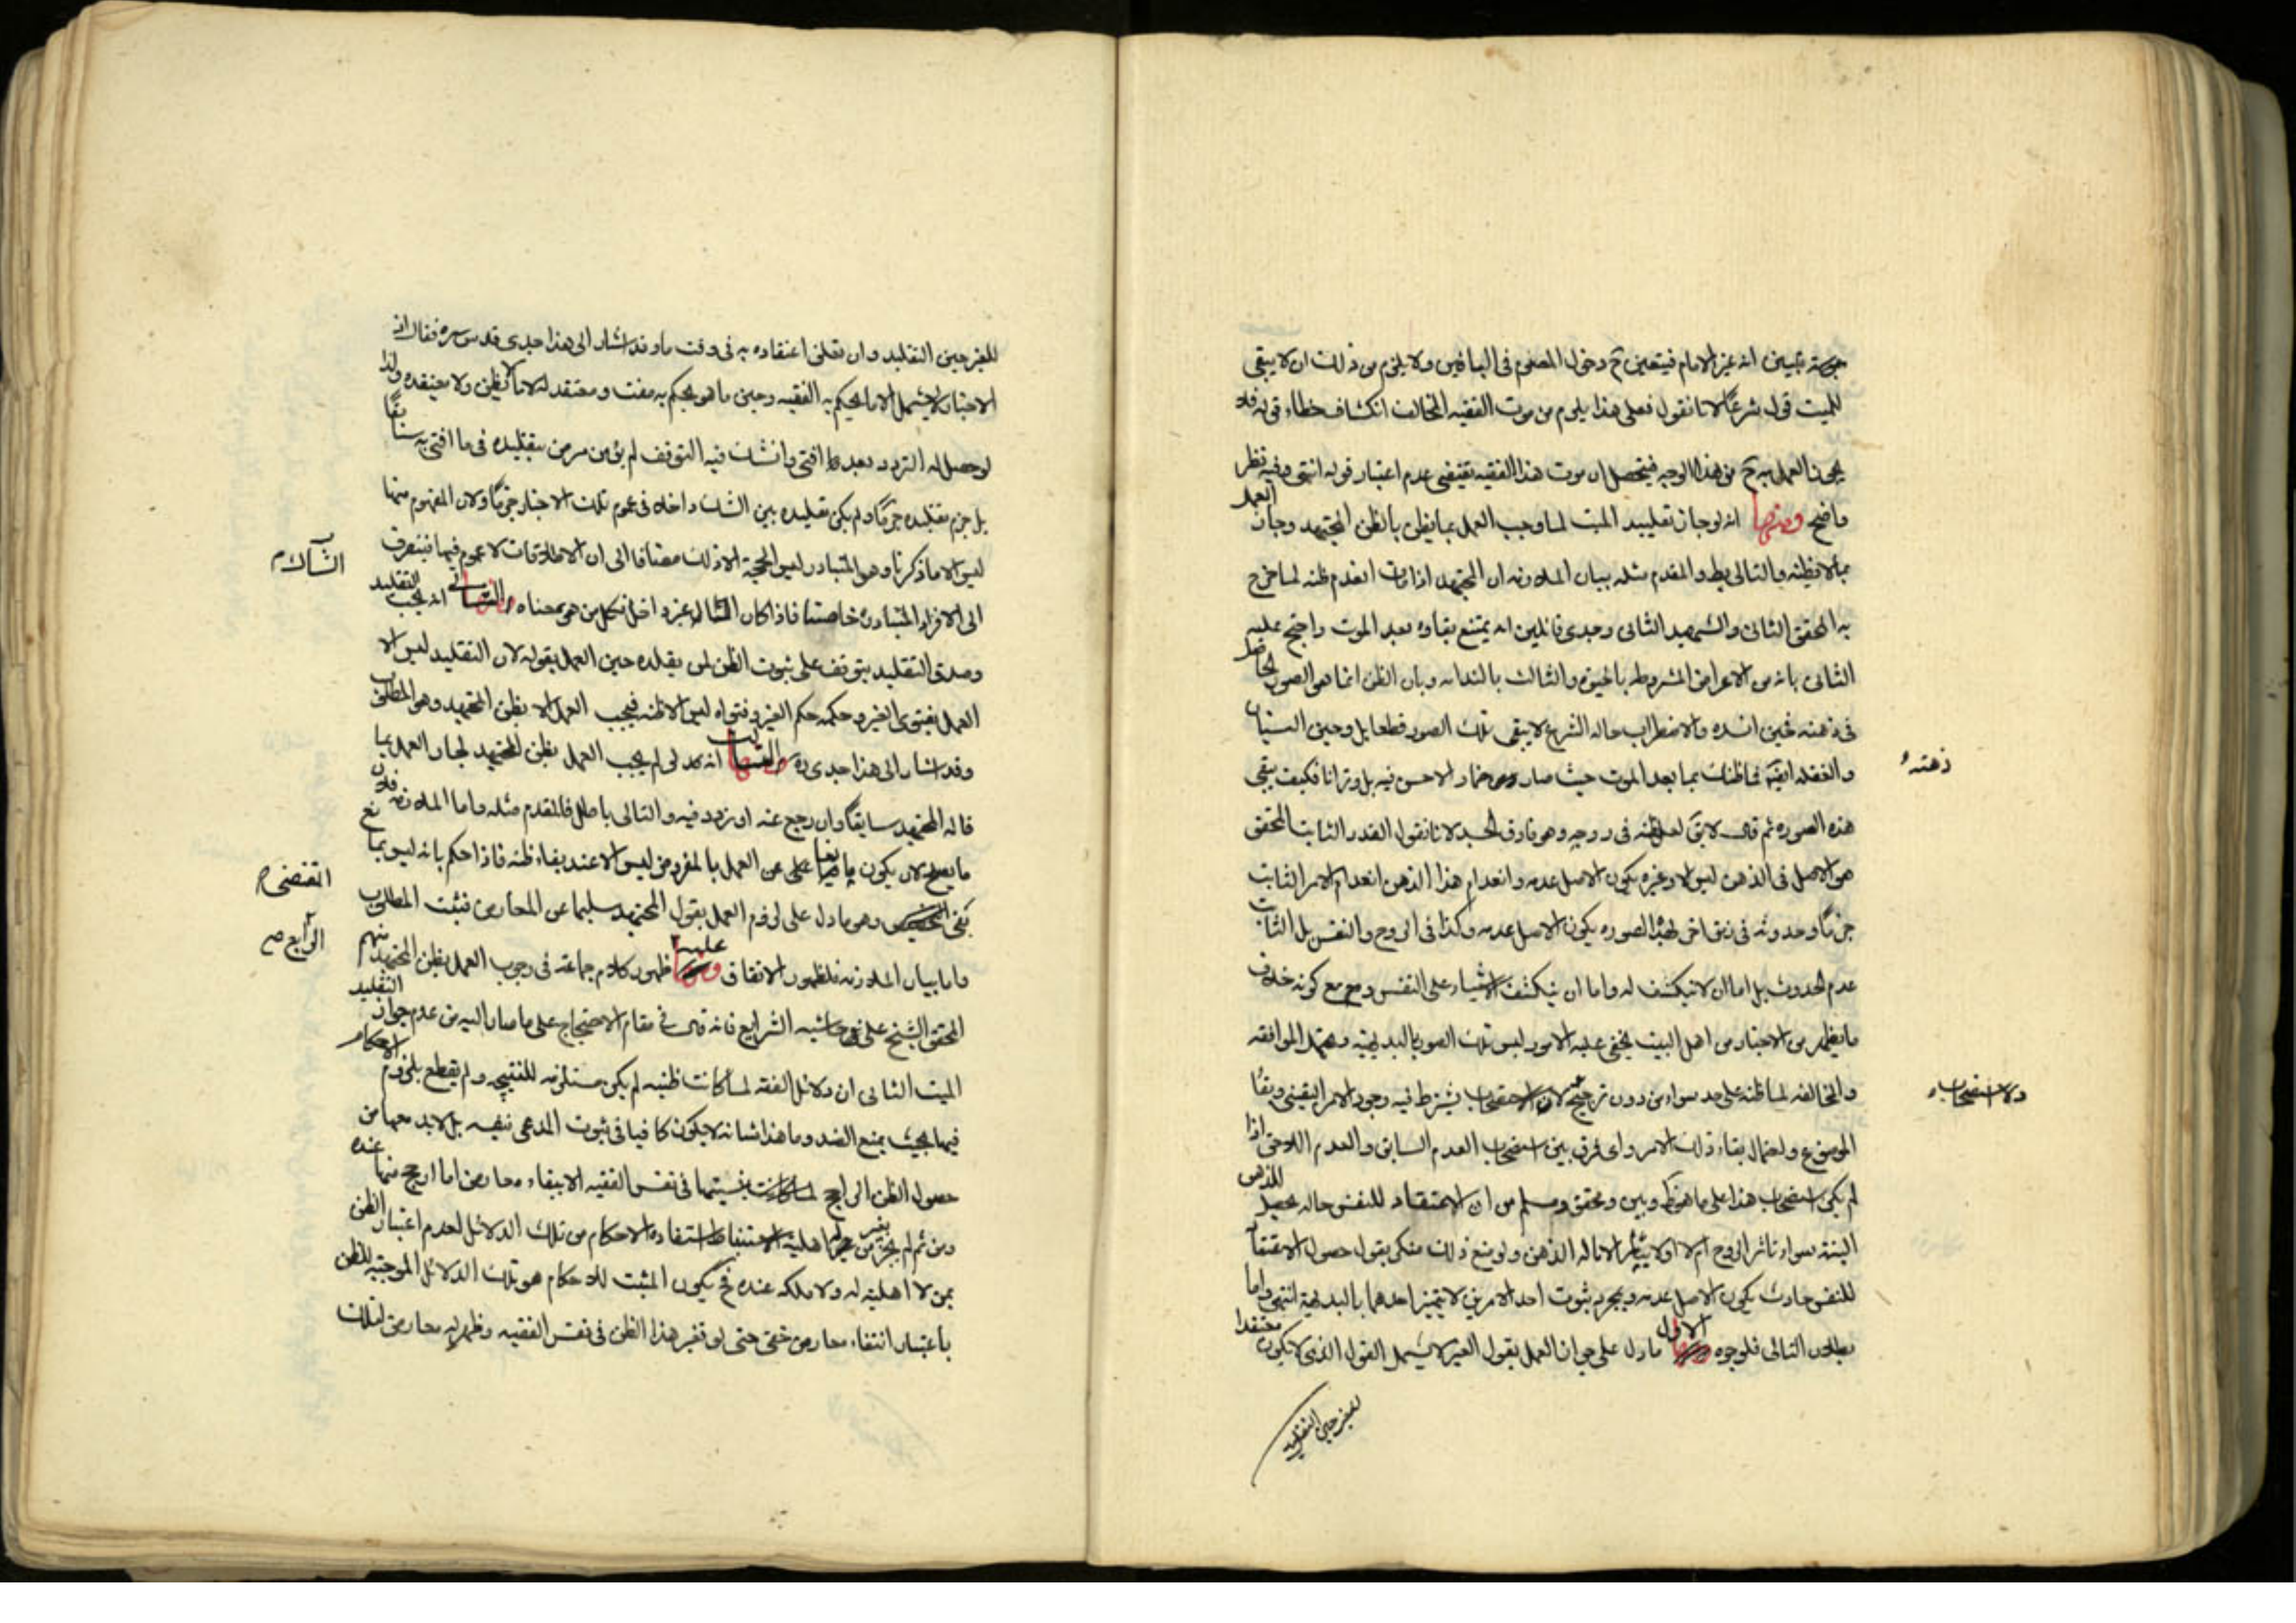 بموته تبين انه غير الامام فيتعين ح دخول المعصوم فى الباقين ولا يلزم من ذلك ان لا يبقى
للميت قول شرعا لانا نقول فعلى هذا يلزم من موت الفقيه المخالف انكشاف خطاء قوله فلا
يجوز العمل به ح من هذا الوجه فيتحصل ان موت هذا الفقيه يقتضى عدم اعتبار قوله انتهى وفيه نظر
واضح ومنها انه لو جاز تقليد الميت لما وجب العمل بما يظن بالظن المجتهد وجاز العمل
بما لا يظنه والتالى بط والمقدم مثله بيان الملازمه ان المجتهد اذا مات انعدم ظنه لما صرح
به المحقق الثانى والشهيد الثانى وجدى قائلين انه يمتنع بقاؤه بعد الموت واحتج عليه
الثانى بانه من الاعراض المشروطه بالحيوة والثالث بالنداء وبان الظن انما هو الصور الحاضر
فى ذهنه فحين اشده والاضطراب حاله النزع لا يبقى تلك الصور قطعا بل وحين النسيان
والغفله ايضا فما ظنك بما بعد الموت حيث صار جمادا لا حس فيه بل وترابا فكيف يبقى
ذهنه
هذه الصوره ثم قال لا يق لعل ظنه فى روحه وهو فارق الجسد لانا نقول القدر الثابت المحقق
هو الاصل فى الذهن ليس الا وغيره يكون الاصل عدمه وانعدام هذا الذهن انعدام الامر الثابت
جزما وحدوثه فى زمن اخر لهذا الصوره يكون الاصل عدمه وكذا فى الروح والنفس بل الثابت
عدم الحدوث بل اما ان لا ينكشف له واما ان ينكشف الاشياء على النفس ومع مع كونه خلاف
ما يظهر من الاخبار من اهل البيت يخفى عليه الامور ليس تلك الصور بالبديهيه ويحتمل الموافقه
والمخالفه لما ظنه على حد سواء من دون ترجيح لان الاستصحاب يشترط فيه وجود الامر اليقينى وبقاء
ولا استصحاب
الموضوع واحتمال بقاء ذلك الامر واى فرق بين استصحاب العدم السابق والعدم اللاحق اذا
لم يكن استصحاب هذا على ما هو ظ وبين ومحقق ومسلم من ان الاعتقاد للنفس حاله يحصل للذهن
البتة سواء تاثر الروح ام لا او لا يتاثر الا ناله الذهن ولو منع ذلك منكر بقول حصول الاعتقاد
للنفس حادث يكون الاصل عدمه وبمجرد ثبوت احد الامرين لا يتميز احدهما بالبديهة انتهى واما
بطلان التالى فلوجوه الاول ما دل على جواز العمل بقول الغير لا يشمل القول الذى لا يكون معتقدا
للغير حين التقليد
للغير حين التقليد وان تعلق اعتقاده به فى وقت ما وقد اشار الى هذا جدى قدس سره فقال ان
الاخبار لا يشمل الا ما يحكم به الفقيه وحين ما هو يحكم به مفت ومعتقد له لا ما لا يظن ولا يعتقده ولذا
لو حصل له التردد بعد ما افتى وانشاء فيه التوقف لم يؤمن من بتقليده فى ما افتى به سابقا
بل جزم تقليده جزما ولم يكن تقليده بين الشك داخلا فى عموم تلك الاخبار جزما ولان المفهوم منها
ليس الا ما ذكرنا وهو المتبادر ليس الحجة الا ذلك مضافا الى ان الاطلاقات لا عموم فيها فينصرف
الى الافراد المتبادرة خاصتا فاذا كان المثال غير داخل فكل من هو بمعناه الثانى انه يجب التقليد
وصدق التقليد يتوقف على ثبوت الظن لمن يقلده حين العمل بقوله لان التقليد ليس الا
العمل بفتوى الغير وحكمه حكم الغير وفتواه ليس الا ظنه فيجب العمل الا بظن المجتهد وهو المطلوب
وقد اشار الى هذا جدى ره الثالث انه لو لم يجب العمل بظن المجتهد لجاز العمل بما
قاله المجتهد سابقا وان رجع عنه او تردد فيه والتالى باطل فالمقدم مثله واما الملازمه فلان
ما يصلح لان يكون مانعا على عن العمل بالمفروض ليس الا عند بقاء ظنه فاذا حكم بانه ليس بمانع
المقتضى
بقى المقتضى وهو ما دل على لزوم العمل بقول المجتهد سليما عن المعارض فثبت المطلوب
الرابع صح
واما بيان الملازمه فلظهور الاتفاق عليه ظهور كلام جماعة فى وجوب العمل بظن المجتهد منهم
المحقق الشيخ على فى حاشيه الشرايع فانه قال فى مقام الاحتجاج على ما صار اليه من عدم جواز التقليد
الميت الثانى ان دلائل الفقه لما كانت ظنيه لم يكن مستلزمه للنتيجه ولم يقطع بلزوم الاحكام
فيها بحيث يمنع الضد وما هذا شانه لا يكون كافيا فى ثبوت المدعى نفسه بل لابد معها من
حصول الظن الراجح فى نفس الفقيه الا ببقاء معارض اما ارجح منها عنده
ومن ثم لم يجز من بغير اهلية استفاده الاحكام من تلك الدلائل لعدم اعتبار الظن
بمن لا اهلية له ولا ملكه عنده فح يكون المثبت للاحكام هو تلك الدلائل الموجبه للظن
باعتبار انتفاء معارض حتى لو تغير هذا الظن فى نفس الفقيه وظهر له معارض لتلك